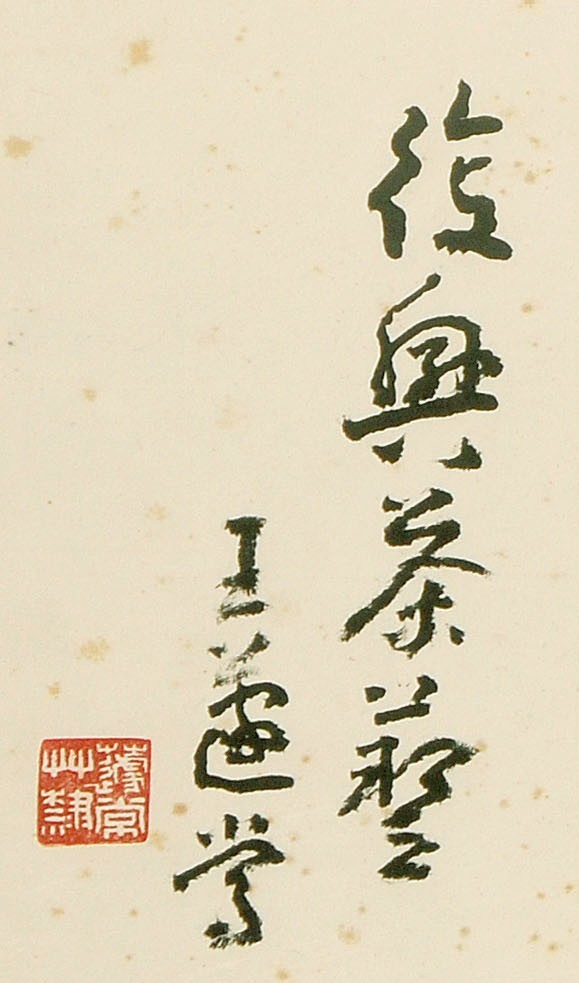 復興茶藝
王蘧常
蘧常
艸隸